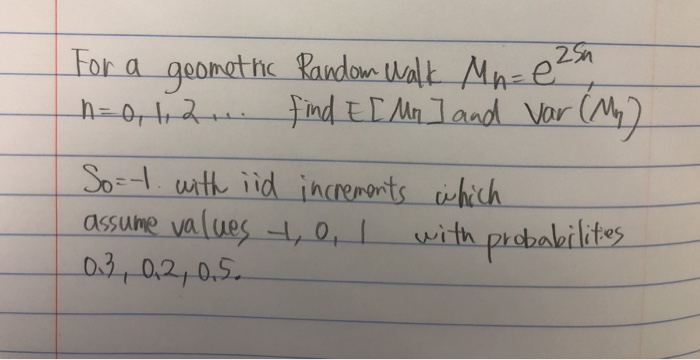 For a geometric Random Walk Mn=e^2Sn,
n=0,1,2... find E[Mn] and Var(Mn)
So=-1. with iid increments which
assume values -1, 0, 1 with probabilities
0.3, 0.2, 0.5.